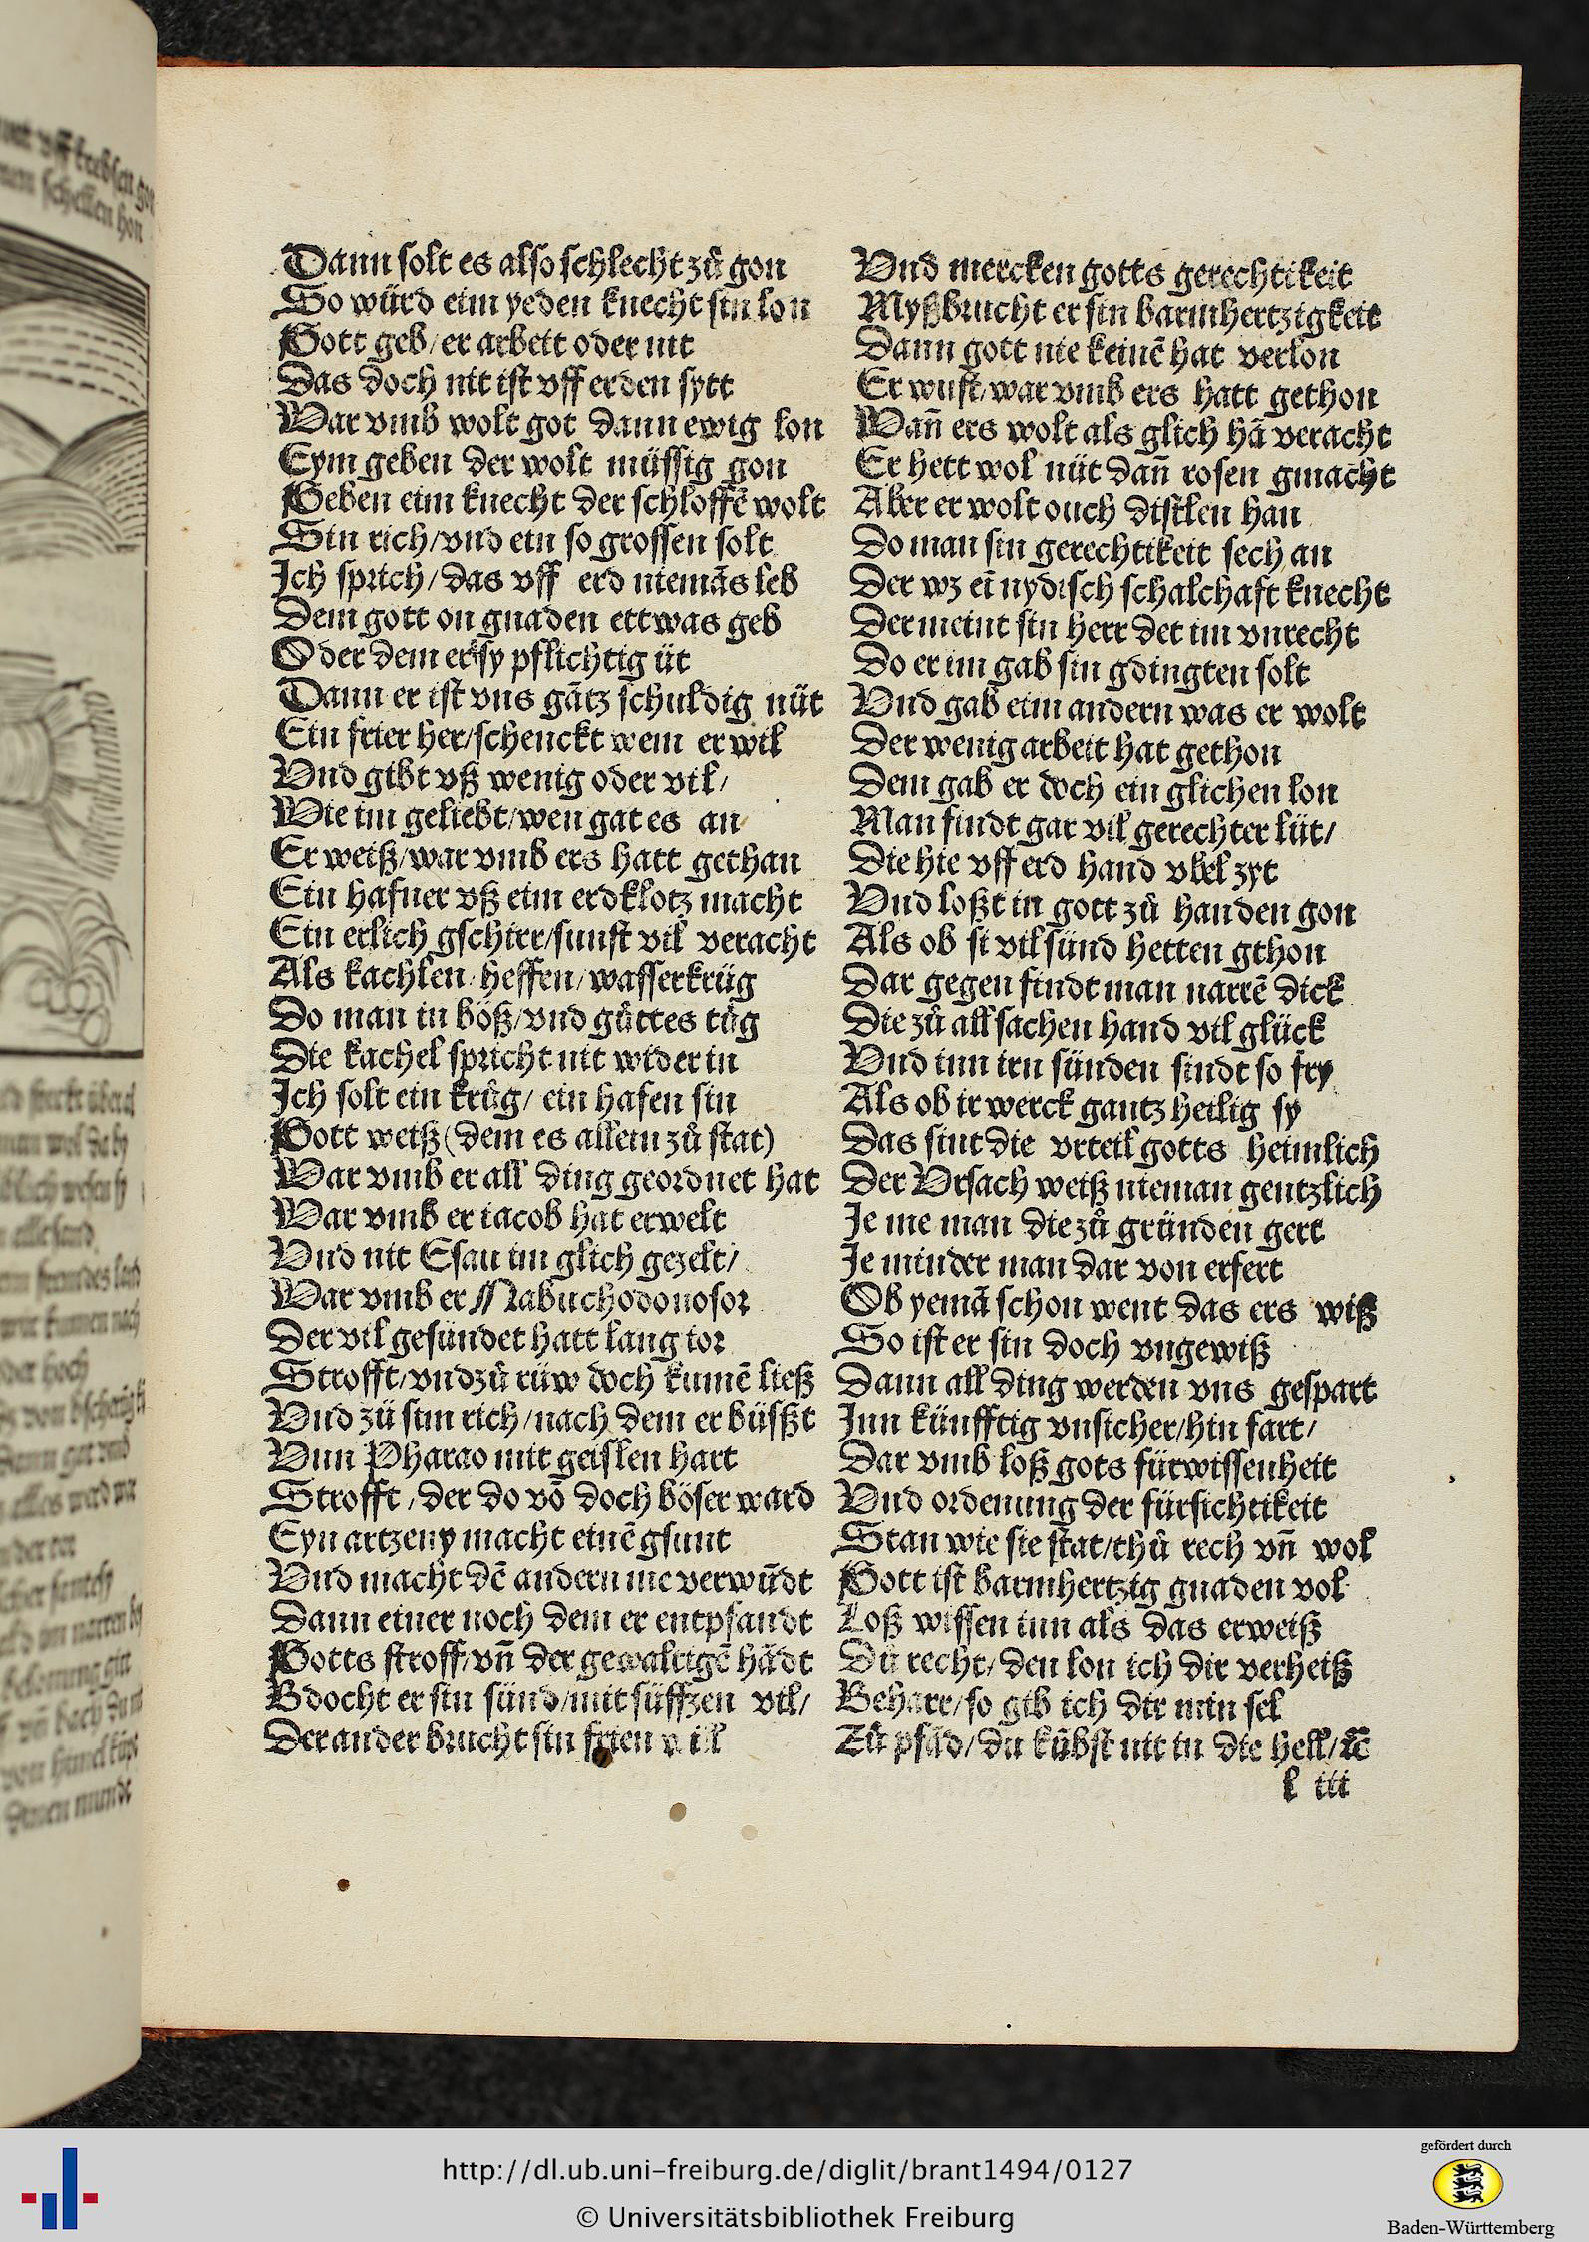 Dann solt es also schlecht zů gon
So würd eim yeden knecht sin lon
Gott geb / er arbeit oder nit
Das doch nit ist vff erden sytt
War vmb wolt got dann ewig lon
Eym geben der wolt müssig gon
Geben eim knecht der schloffē wolt
Sin rich / vnd ein so grossen solt
Ich sprich / das vff erd niemās leb
Dem gott on gnaden ettwas geb
Oder dem er sy pflichtig üt
Dann er ist vns gātz schuldig nüt
Ein frier her / schenckt wem er wil
Vnd gibt vß wenig oder vil /
Wie im geliebt / wen gat es an
Er weiß / war vmb ers hatt gethan
Ein hafner vß eim erdklotz macht
Ein erlich gschirr / sunst vil veracht
Als kachlen / heffen / wasserkrüg
Do man in böß / vnd gůttes tůg
Die kachel spricht nit wider in
Ich solt ein krůg / ein hafen sin
Gott weiß (dem es allein zů stat)
War vmb er all ding geordnet hat
War vmb er iacob hat erwelt
Vnd nit Esau im glich gezelt /
War vmb er Nabuchodonosor
Der vil gesündet hatt lang ior
Strofft / vnd zů rüw doch kumē ließ
Vnd zů sim rich / nach dem er büßt
Vnn Pharao mit geislen hart
Strofft / der do vō doch böser ward
Eyn artzeny macht einē gsunt
Vnd macht dē andern me verwūdt
Dann einer noch dem er entpfandt
Gotts stroff / vn̄ der gewaltigē hādt
Bdocht er sin sünd / mit süffzen vil /
Der ander brucht sin frien will
Vnd mercken gotts gerechtikeit
Myßbrucht er sin barmhertzigkeit
Dann gott nie keinē hat verlon
Er wust / war vmb ers hatt gethon
Wan̄ ers wolt als glich hā veracht
Er hett wol nüt dan̄ rosen gmacht
Aber er wolt ouch distlen han
Do man sin gerechtikeit sech an
Der wz eī nydisch schalchaft knecht
Der meint sin herr det im vnrecht
Do er im gab sin gdingten solt
Vnd gab eim andern was er wolt
Der wenig arbeit hat gethon
Dem gab er doch ein glichen lon
Man findt gar vil gerechter lüt /
Die hie vff erd hand vbel zyt
Vnd loßt in gott zů handen gon
Als ob si vil sünd hetten gthon
Dar gegen findt man narrē dick
Die zů all sachen hand vil glück
Vnd inn irn sünden sindt so fry
Als ob ir werck gantz heilig sy
Das sint die vrteil gotts heimlich
Der Vrsach weiß nieman gentzlich
Je me man die zů gründen gert
Je minder man dar von erfert
Ob yemā schon went das ers wiß
So ist er sin doch vngewiß
Dann all ding werden vns gespart
Inn künfftig vnsicher / hin fart /
Dar vmb loß gots fürwissenheit
Vnd ordenung der fürsichtikeit
Stan wie sie stat / thů rech vn̄ wol
Gott ist barmhertzig gnaden vol
Loß wissen inn als das er weiß
Dů recht / den lon ich dir verheiß
Beharr / so gib ich dir min sel
Zů pfād / du kūbst nit in die hell / ⁊c̄
l iii
http://dl.ub.uni-freiburg.de/diglit/brant1494/0127
© Universitätsbibliothek Freiburg
gefördert durch
Baden-Württemberg